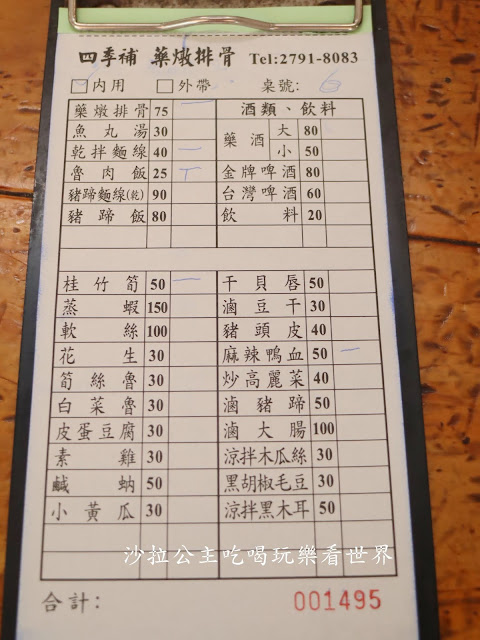 四季補 藥燉排骨 Tel:2791-8083
內用 外帶 桌號: 6
藥燉排骨 75 一 酒類、飲料
魚丸湯 30 藥酒 大 80
乾拌麵線 40 一 小 50
魯肉飯 25 T 金牌啤酒 80
豬蹄麵線(乾) 90 台灣啤酒 60
豬蹄飯 80 飲料 20
桂竹筍 50 一 干貝唇 50
蒸蝦 150 滷豆干 30
軟絲 100 豬頭皮 40
花生 30 麻辣鴨血 50 一
筍絲魯 30 炒高麗菜 40
白菜魯 30 滷豬蹄 50
皮蛋豆腐 30 滷大腸 100
素雞 30 涼拌木瓜絲 30
鹹蚋 50 黑胡椒毛豆 30
小黃瓜 30 涼拌黑木耳 50
沙拉公主吃喝玩樂看世界
合計: 001495